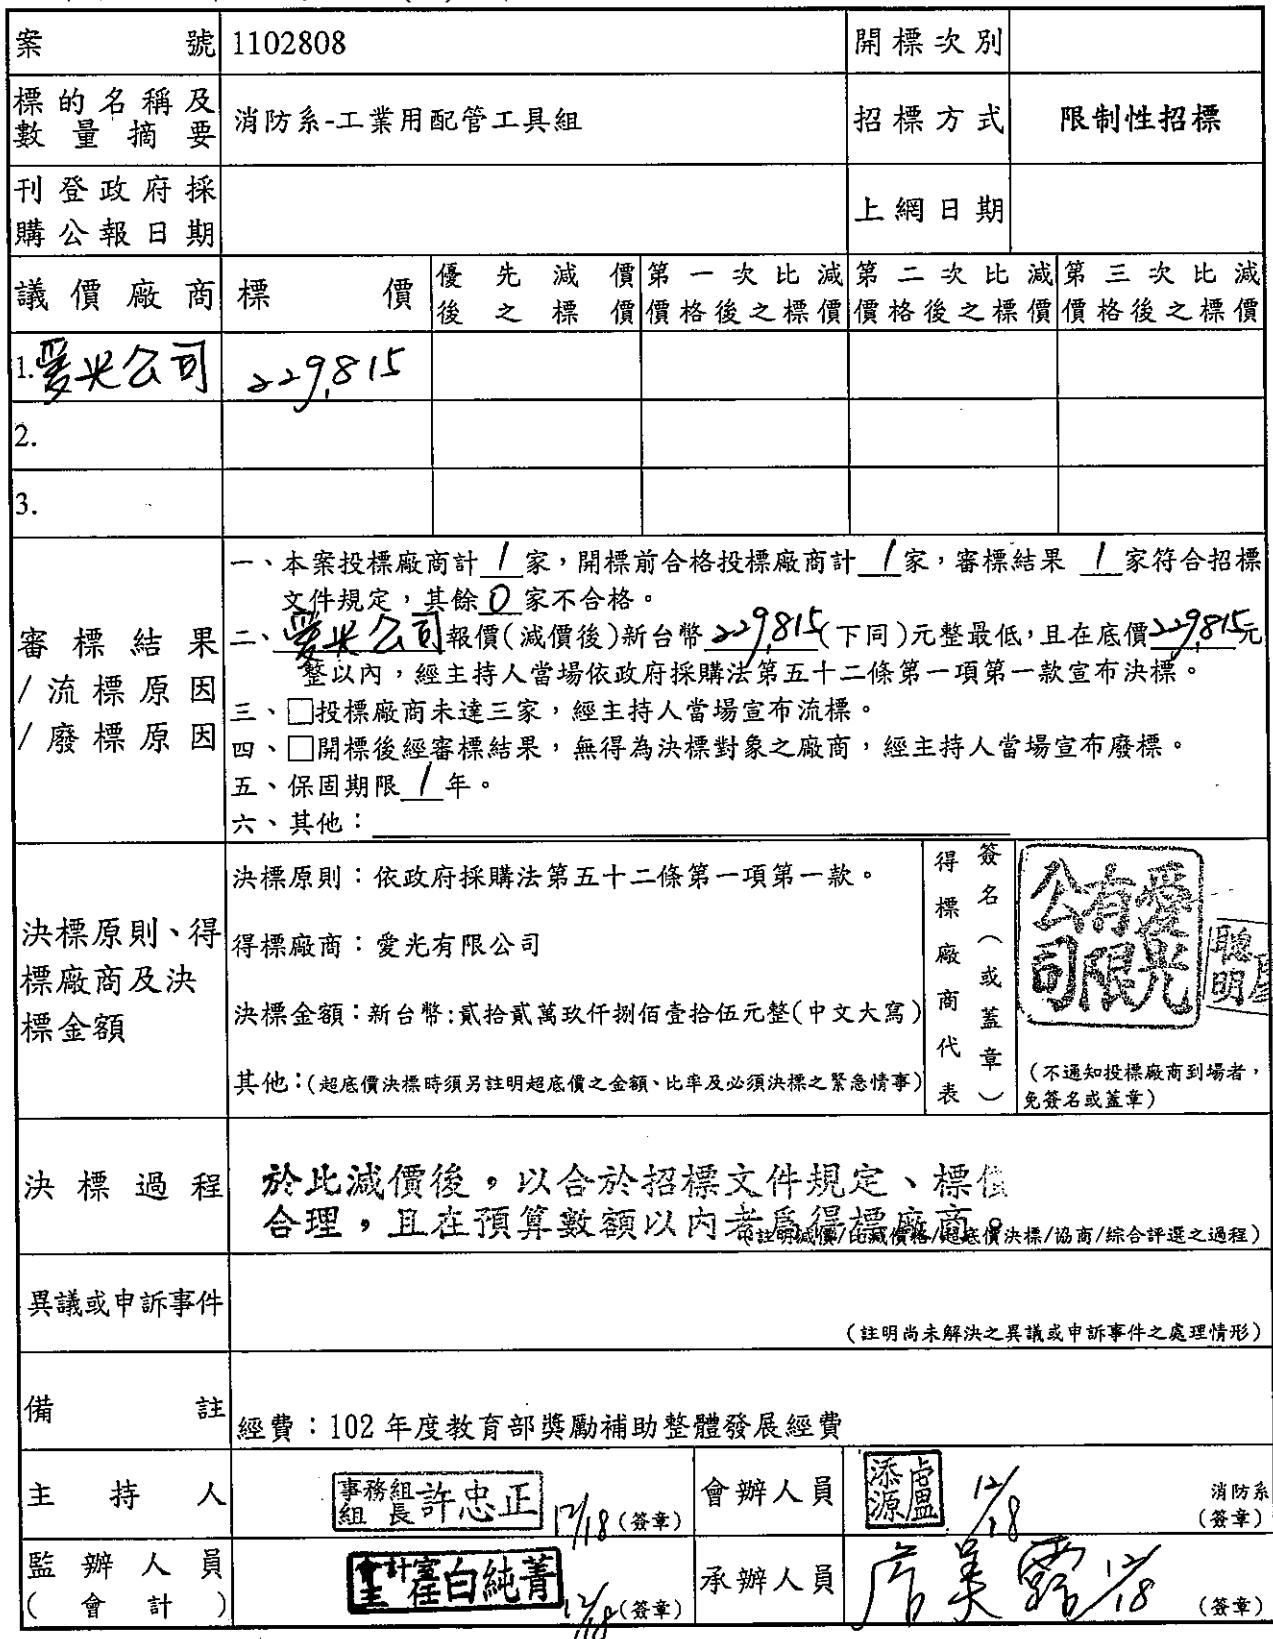 案號 1102808 開標次別
標的名稱及數量摘要 消防系-工業用配管工具組 招標方式 限制性招標
刊登政府採購公報日期 上網日期
議價廠商 標價 優先減價後之標價 第一次比減價格後之標價 第二次比減價格後之標價 第三次比減價格後之標價
1.愛光公司 229,815
2.
3.
審標結果/流標原因/廢標原因
一、本案投標廠商計 1 家,開標前合格投標廠商計 1 家,審標結果 1 家符合招標
文件規定,其餘 0 家不合格。
二、愛光公司報價(減價後)新台幣 229,815 (下同)元整最低,且在底價 229,815 元
整以內,經主持人當場依政府採購法第五十二條第一項第一款宣布決標。
三、□投標廠商未達三家,經主持人當場宣布流標。
四、□開標後經審標結果,無得為決標對象之廠商,經主持人當場宣布廢標。
五、保固期限 1 年。
六、其他:
決標原則、得標廠商及決標金額
決標原則:依政府採購法第五十二條第一項第一款。
得標廠商:愛光有限公司
決標金額:新台幣:貳拾貳萬玖仟捌佰壹拾伍元整(中文大寫)
其他:(超底價決標時須另註明超底價之金額、比率及必須決標之緊急情事)
得標廠商代表
簽名(或蓋章)
愛光有限公司
聰明
(不通知投標廠商到場者,
免簽名或蓋章)
決標過程
於比減價後,以合於招標文件規定、標價
合理,且在預算數額以內者為得標廠商。
(註明減價/比減價格/超底價決標/協商/綜合評選之過程)
異議或申訴事件
(註明尚未解決之異議或申訴事件之處理情形)
備註 經費:102 年度教育部獎勵補助整體發展經費
主持人 事務組組長 許忠正 12/18 (簽章) 會辦人員 盧添源 12/18 消防系
(簽章)
監辦人員(會計) 會計室主 白純菁 12/18 (簽章) 承辦人員 12/18 (簽章)